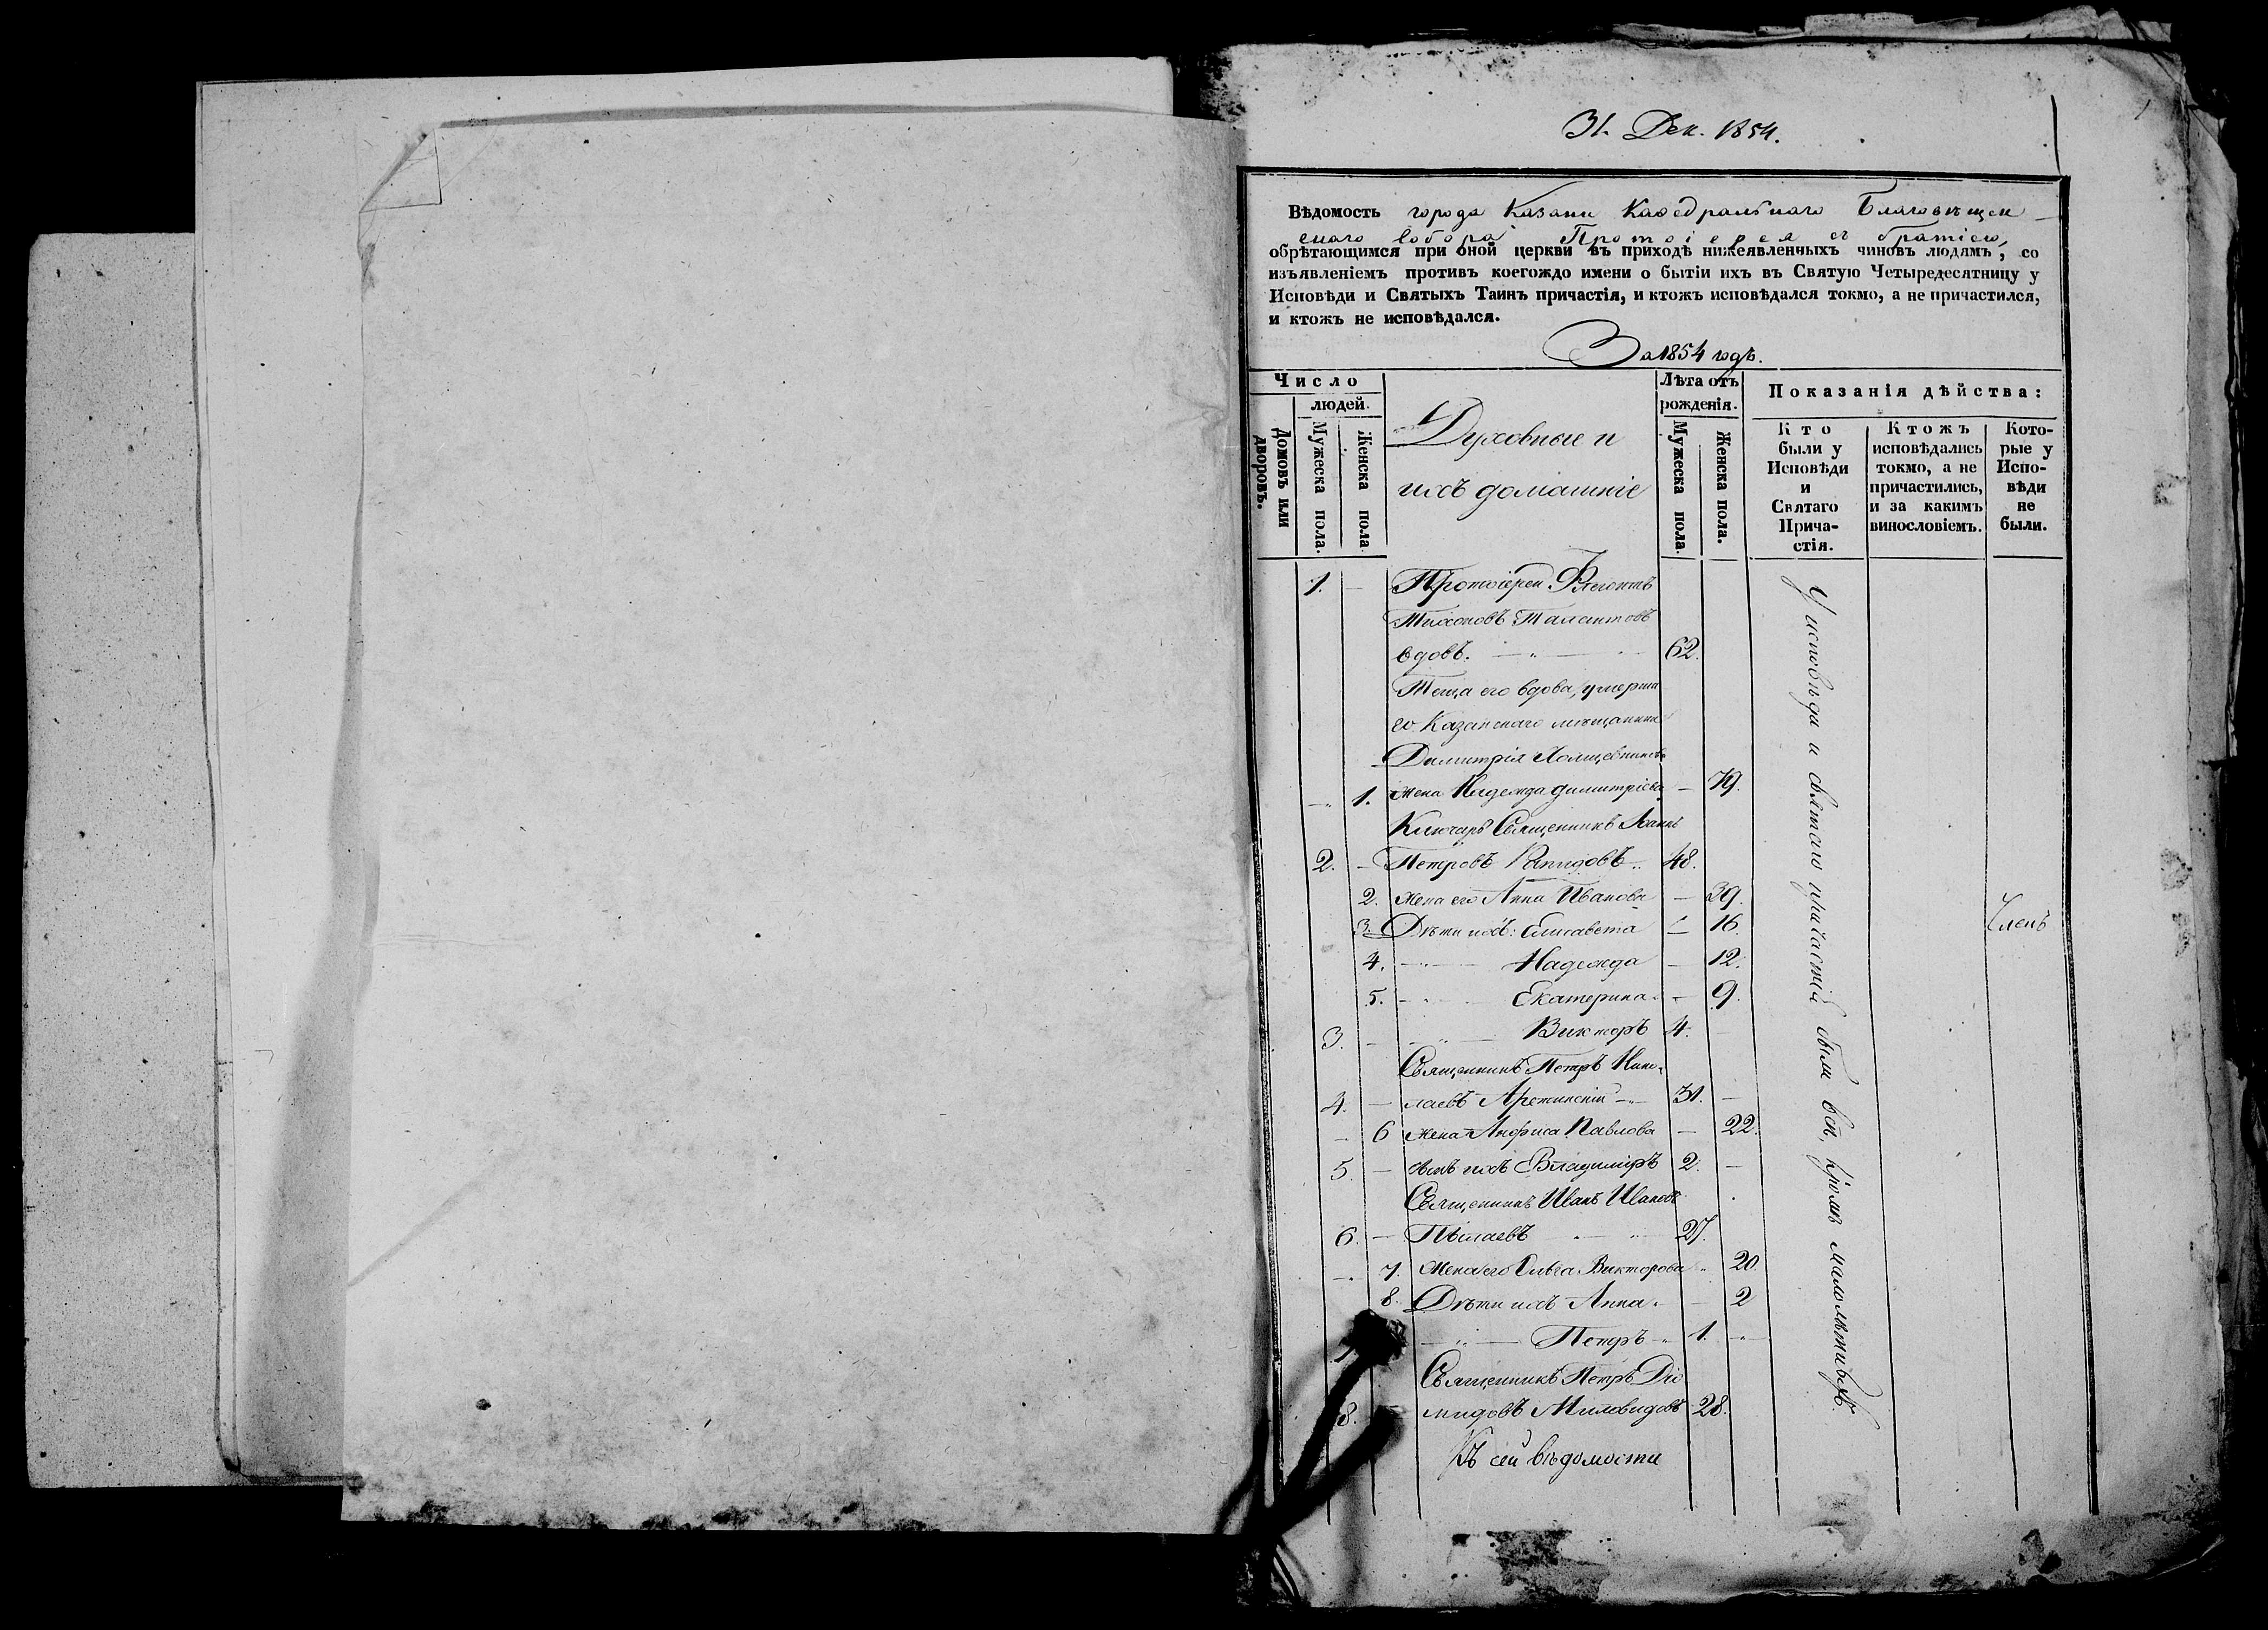 31. Дек. 1854.
1
Вѣдомость города Казани Каѳедральнаго Благовѣщен-
скаго Собора Протоіерея съ братіею,
обрѣтающимся при оной церкви въ приходѣ нижеявленныхъ чиновъ людямъ, со
изъявленіемъ противъ коегождо имени о бытіи ихъ въ Святую Четыредесятницу у
Исповѣди и Святыхъ Таинъ причастія, и ктожъ исповѣдался токмо, а не причастился,
и ктожъ не исповѣдался.
За 1854 годъ.
Число
людей.
Домовъ или дворовъ.
Мужеска пола.
Женска пола
Духовные и
ихъ домашніе
Лѣта отъ
рожденія.
Мужеска пола.
Женска пола.
Показанія дѣйства:
Кто
были у
Исповѣди
и
Святаго
Прича-
стія.
Ктожъ
исповѣдались
токмо, а не
причастились,
и за какимъ
винословіемъ.
Кото-
рые у
Испо-
вѣди
не
были.
1. — Протоіерей Флегонтъ
Тихоновъ Талантовъ
вдовъ. — „ — 62.
Теща его вдова, умерша
го Казанскаго мѣщанина
Димитрія
— „ 1. жена Надежда Димитріева — 79.
Ключарь Священникъ Іоаннъ
2. — Петровъ — „ 48.
2. Жена его Анна Иванова — 39.
3. Дѣти ихъ: Елисавета — 16.
4. — „ — Надежда — 12.
5. — „ — Екатерина — 9.
3. — „ — Викторъ 4.
Священникъ Петръ Нико-
4. — лаевъ — „ — 31. —
— 6 жена Анфиса Павлова — 22.
5. — сынъ ихъ Владиміръ 2. —
Священникъ Иванъ Ивановъ
6. — — „ — 27.
— „ 7. Жена его Ольга Викторова „ 20.
8. Дѣти ихъ Анна. — 2
— „ — Петръ — „ 1. — „
Священникъ Петръ Діо
8. мидовъ Миловидовъ 28.
Къ сей вѣдомости
У исповѣди и святаго причастія были всѣ, кромѣ малолѣтнихъ.
Членъ